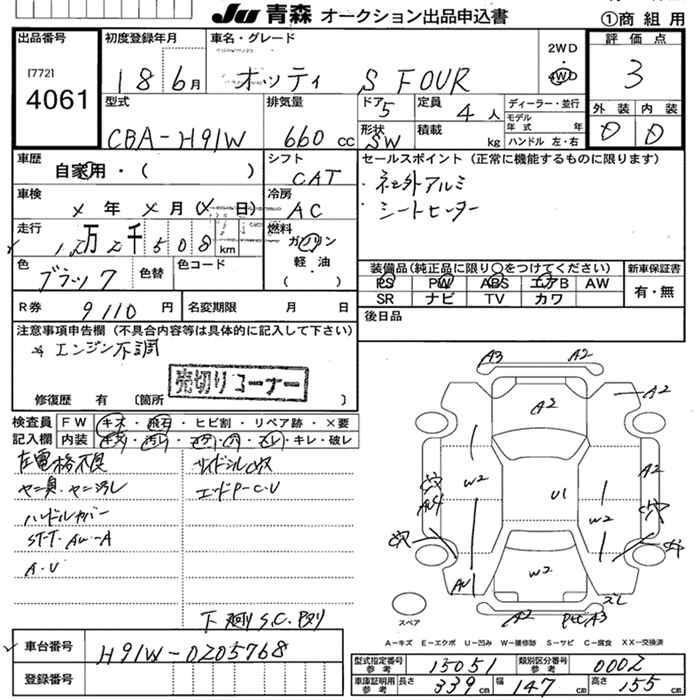 JU 青森 オークション出品申込書
①商 組 用
出品番号
[772]
4061
初度登録年月
18 6月
車名・グレード
オッティ S FOUR
2WD
4WD
評価点
3
外装 内装
D D
型式
CBA-H91W
排気量
660 cc
ドア 5
形状 SW
定員 4人
積載 kg
ディーラー・並行
モデル年式 年
ハンドル 左・右
車歴
自家用・( )
シフト
CAT
セールスポイント (正常に機能するものに限ります)
・社外アルミ
・シートヒーター
車検
× 年 × 月 (× 日)
冷房
AC
走行
12万2千508 km
燃料
ガソリン
軽・油
( )
色
ブラック
色替
色コード
装備品(純正品に限り○をつけてください)
PS PW ABS エアB AW
SR ナビ TV カワ
新車保証書
有・無
R券 9110円
名変期限 月 日
後日品
注意事項申告欄 (不具合内容等は具体的に記入して下さい)
* エンジン不調
売切りコーナー
修復歴 有 〔箇所 〕
検査員記入欄
FW キズ・飛石・ヒビ割・リペア跡・×要
内装 キズ・汚レ・コゲ・穴・スレ・キレ・破レ
ヤニ臭・ヤニ汚レ
ハンドルカバー
A・U
エッドP-C・U
下廻りS.C.
A3 A2
A2
A2
A2
W2
U1
W2
W2
A2
A3
スペア
A−キズ E−エクボ U−凹み W−補修跡 S−サビ C−腐食 XX−交換済
車台番号
H91W-0205768
登録番号
型式指定番号 参考
15051
類別区分番号 参考
0002
車庫証明用 参考
長さ 339cm 幅 147cm 高さ 155cm